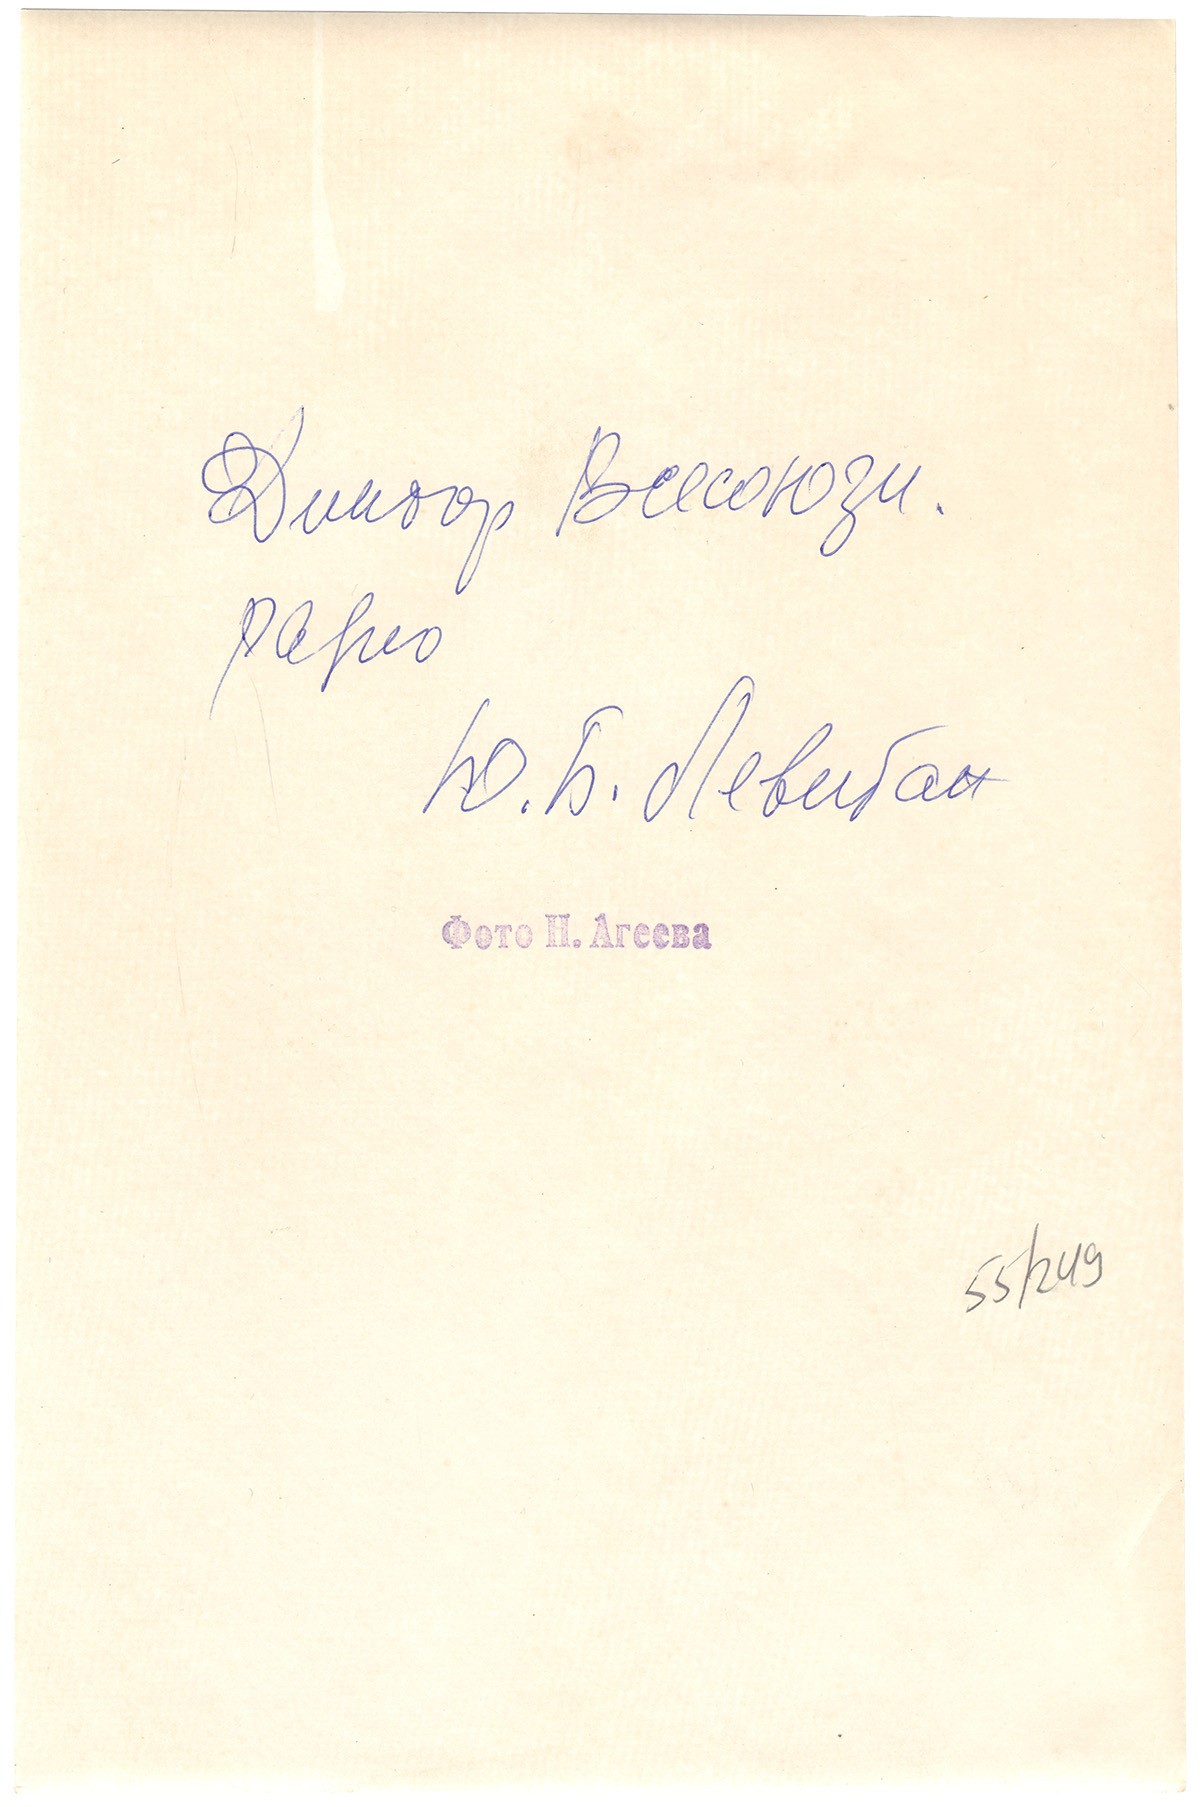 Диктор Всесоюзн.
радио
Ю. Б. Левитан
Фото Н. Агеева
55/249